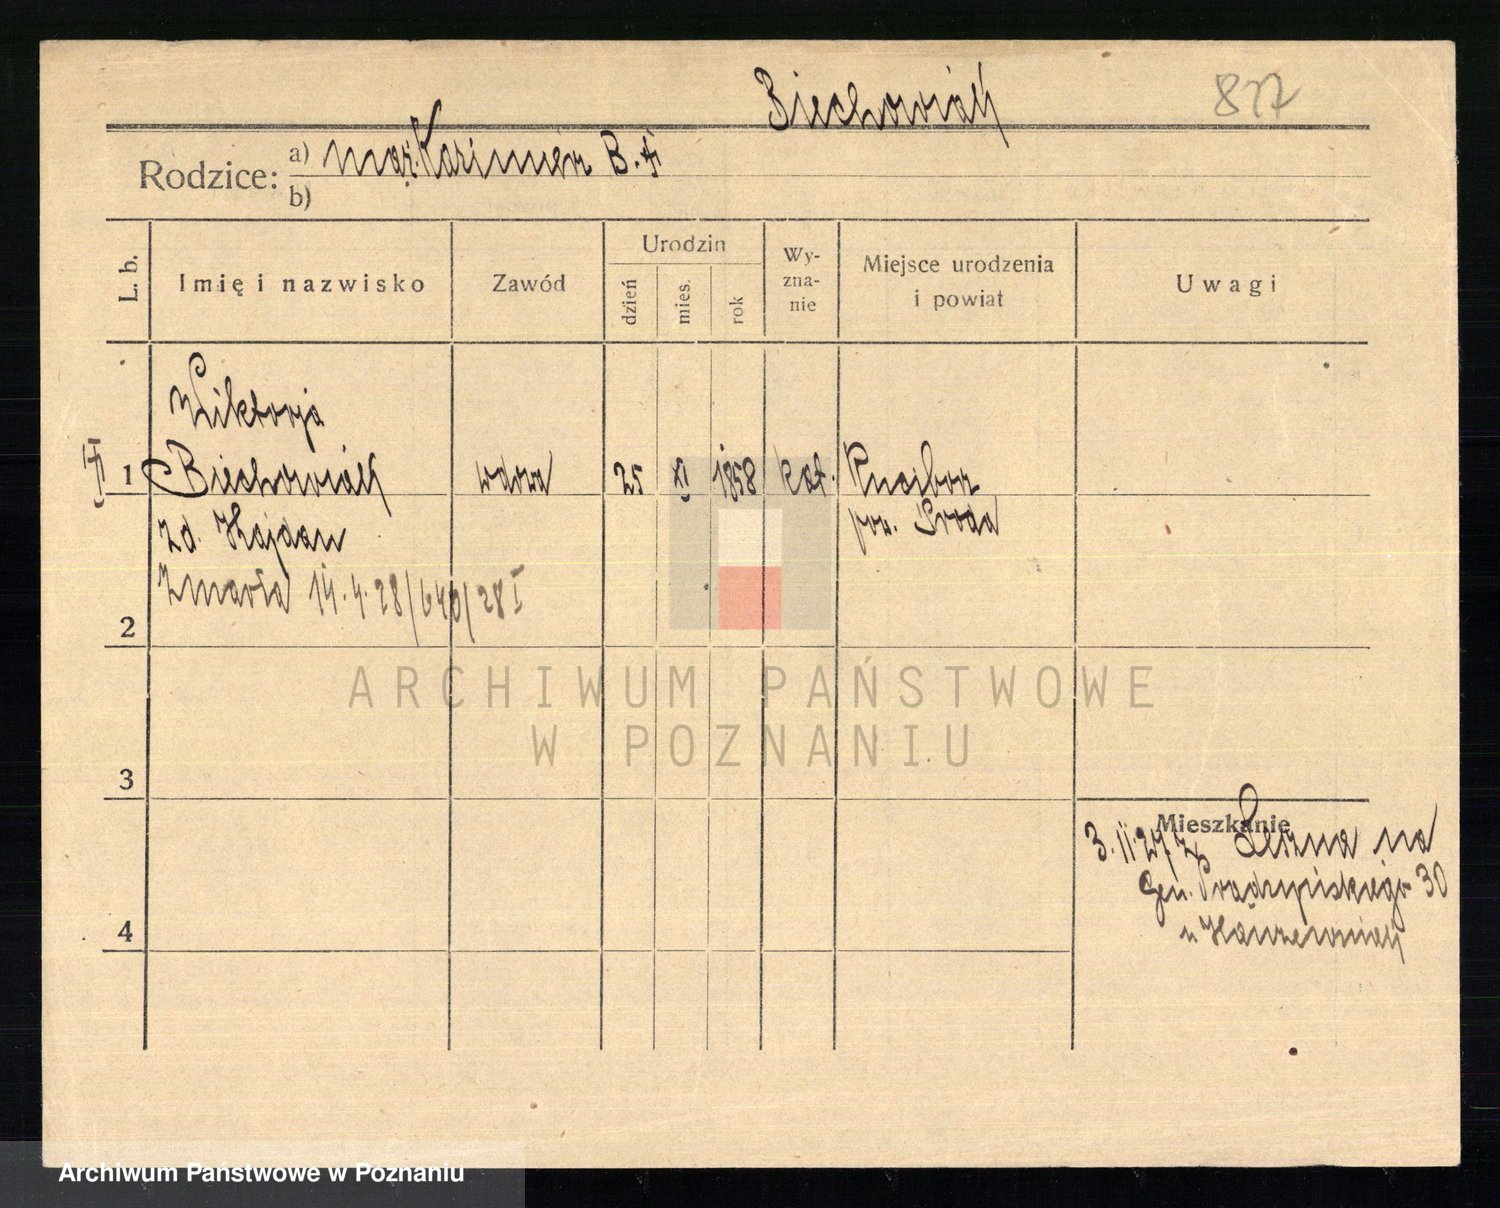 Biechowiak
827
Rodzice: a) mąż. Kazimierz B. †
b)
L. b.
Imię i nazwisko
Zawód
Urodzin
dzień
mies.
rok
Wy-
zna-
nie
Miejsce urodzenia
i powiat
Uwagi
Wiktorja
1 Biechowiak wdowa 25 XI 1858 kat.
pow. Środa
zd. Hajdan
Zmarła 14.4.28/640/28 I
2
3
4
ARCHIWUM PAŃSTWOWE
W POZNANIU
Mieszkanie
3.11.27 z Leszna na
Gen. Prądzyńskiego 30
Archiwum Państwowe w Poznaniu